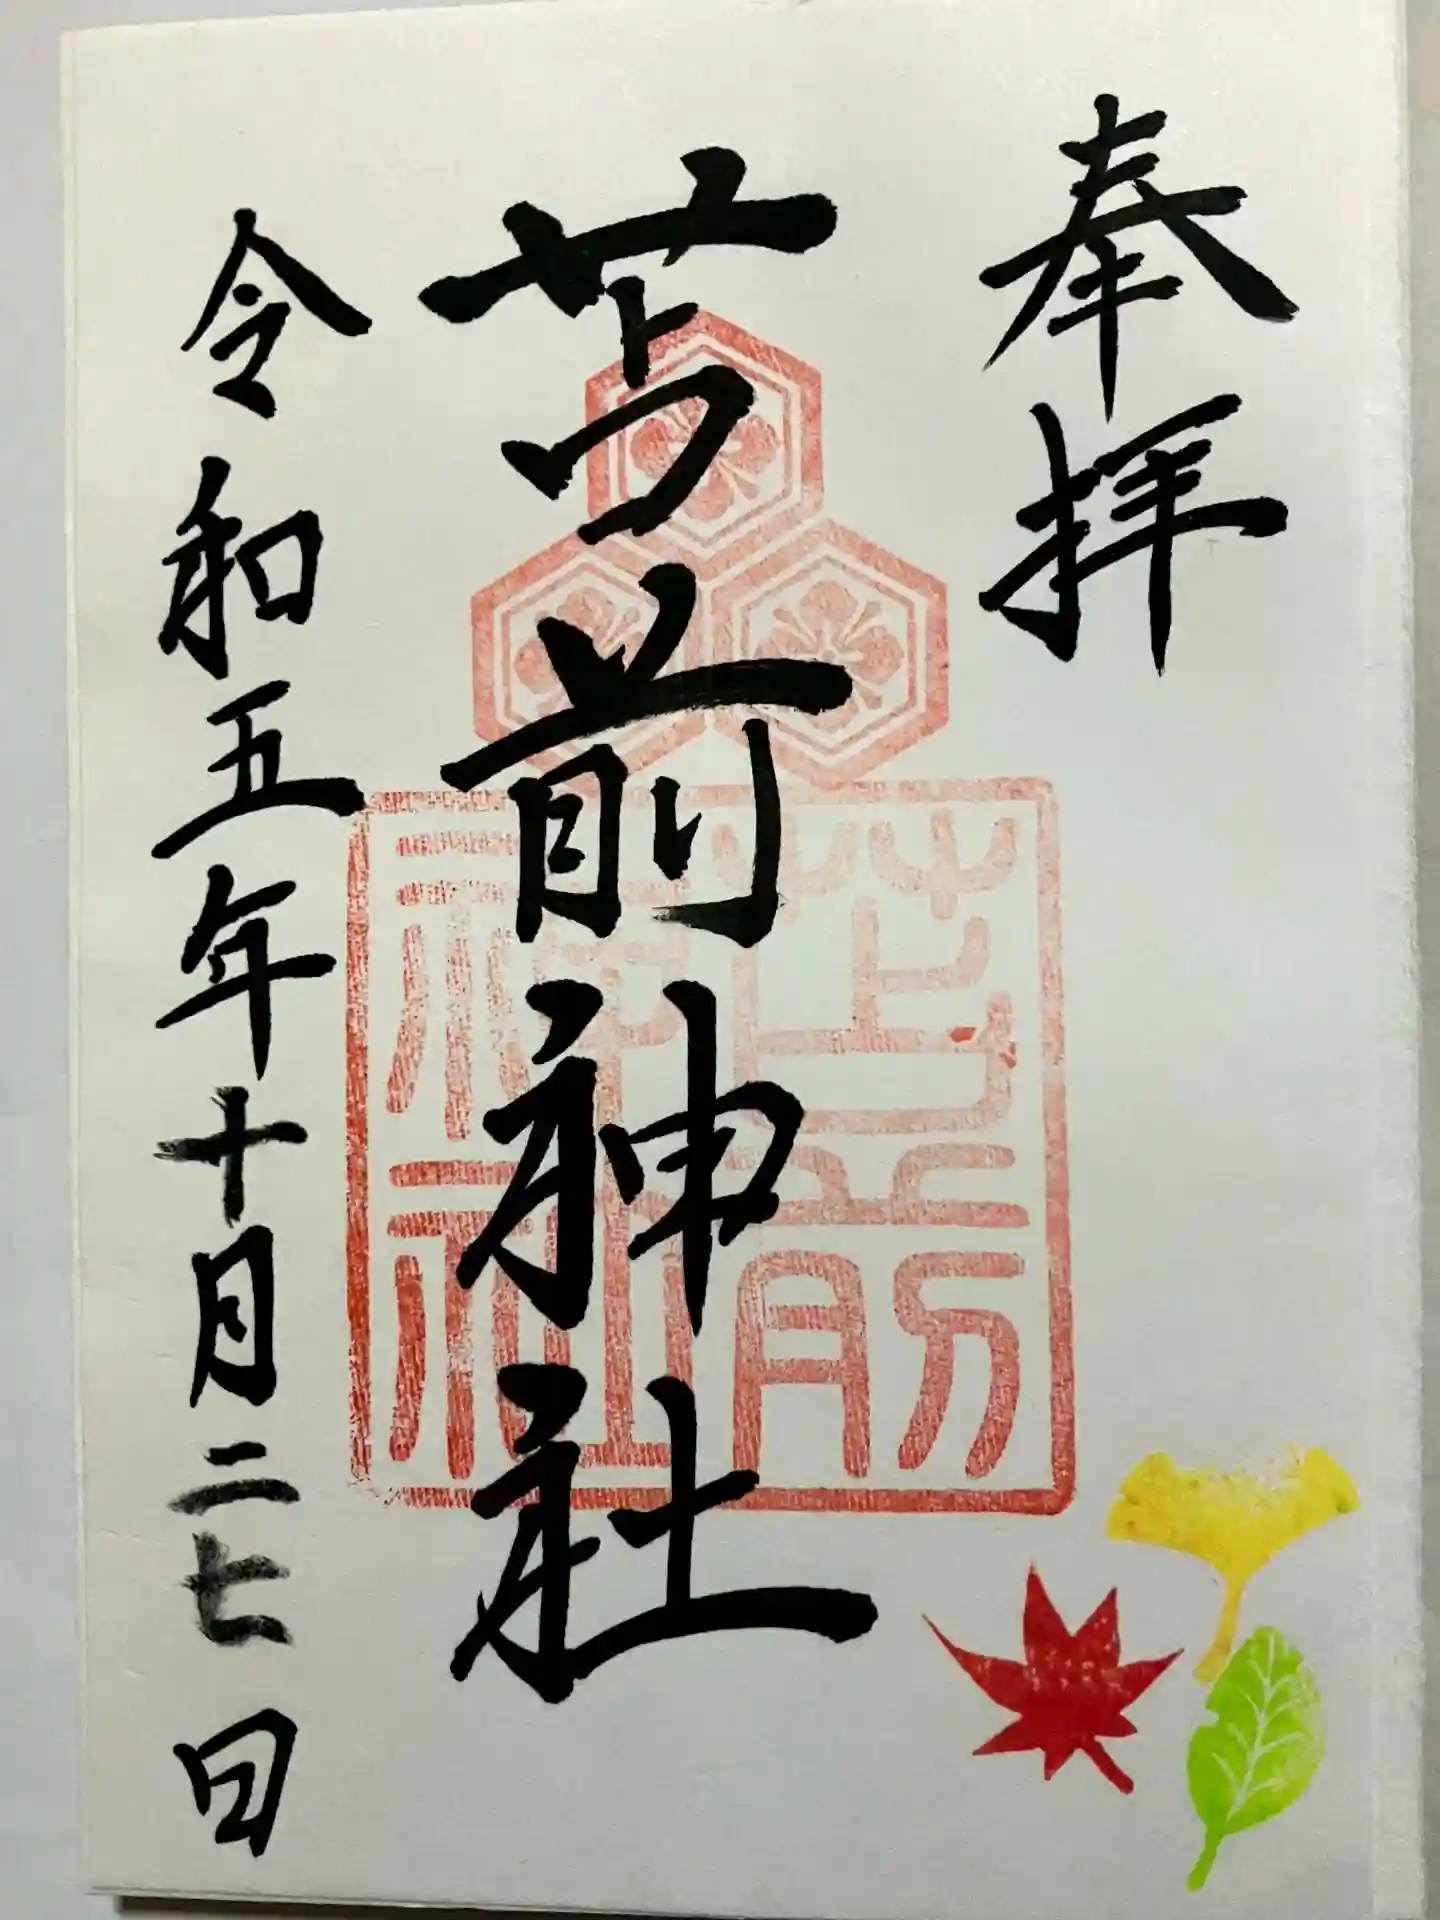 奉拝
苫前神社
令和五年十月二七日
苫前
神社